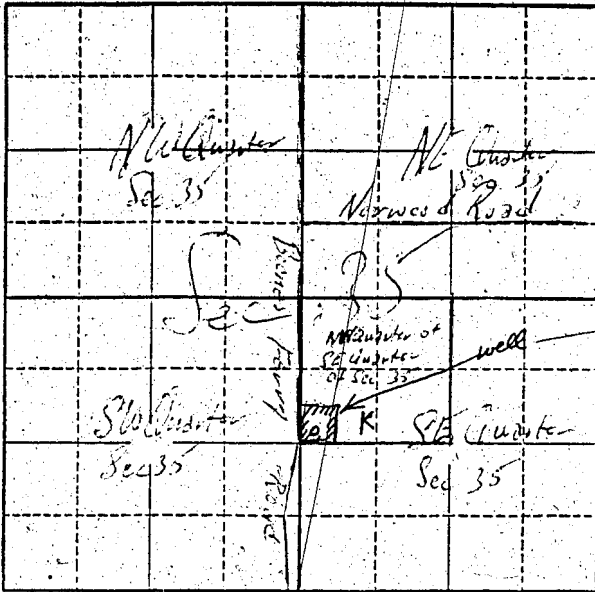 NW Quarter
Sec 35
NE Quarter
Sec 35
Norwood Road
Sec. 35
Ferry
Road
NW Quarter of
SE Quarter
of Sec 35
well
K
SW Quarter
Sec 35
SE Quarter
Sec 35